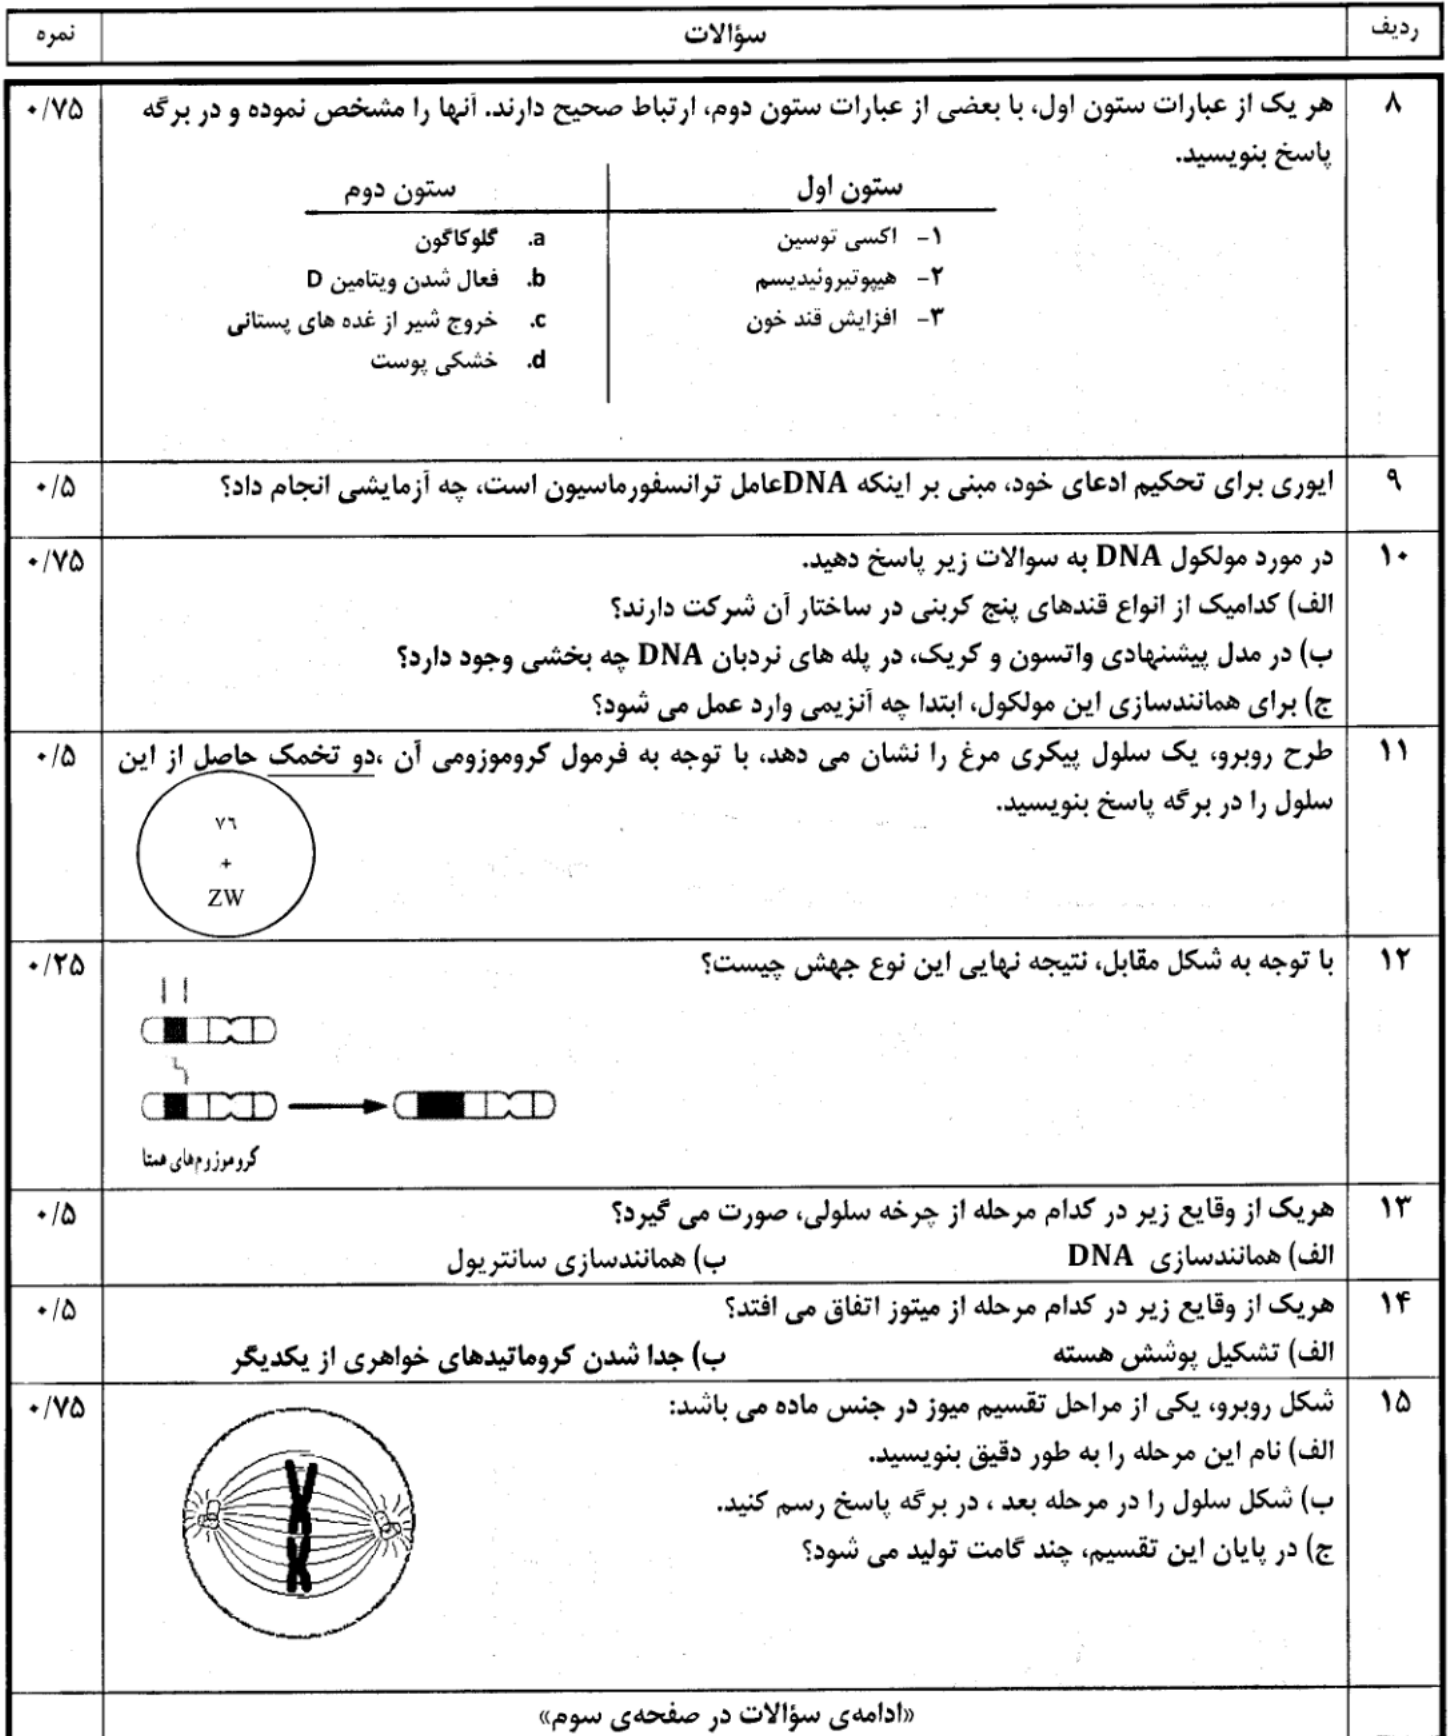 ردیف سؤالات نمره
۸ هر یک از عبارات ستون اول، با بعضی از عبارات ستون دوم، ارتباط صحیح دارند. آنها را مشخص نموده و در برگه ۰/۷۵
پاسخ بنویسید.
ستون اول ستون دوم
۱- اکسی توسین a. گلوکاگون
۲- هیپوتیروئیدیسم b. فعال شدن ویتامین D
۳- افزایش قند خون c. خروج شیر از غده های پستانی
d. خشکی پوست
۹ ایوری برای تحکیم ادعای خود، مبنی بر اینکه DNAعامل ترانسفورماسیون است، چه آزمایشی انجام داد؟ ۰/۵
۱۰ در مورد مولکول DNA به سوالات زیر پاسخ دهید. ۰/۷۵
الف) کدامیک از انواع قندهای پنج کربنی در ساختار آن شرکت دارند؟
ب) در مدل پیشنهادی واتسون و کریک، در پله های نردبان DNA چه بخشی وجود دارد؟
ج) برای همانندسازی این مولکول، ابتدا چه آنزیمی وارد عمل می شود؟
۱۱ طرح روبرو، یک سلول پیکری مرغ را نشان می دهد، با توجه به فرمول کروموزومی آن ،دو تخمک حاصل از این ۰/۵
سلول را در برگه پاسخ بنویسید.
۷٦
+
ZW
۱۲ با توجه به شکل مقابل، نتیجه نهایی این نوع جهش چیست؟ ۰/۲۵
کروموزوم‌های همتا
۱۳ هریک از وقایع زیر در کدام مرحله از چرخه سلولی، صورت می گیرد؟ ۰/۵
الف) همانندسازی DNA ب) همانندسازی سانتریول
۱۴ هریک از وقایع زیر در کدام مرحله از میتوز اتفاق می افتد؟ ۰/۵
الف) تشکیل پوشش هسته ب) جدا شدن کروماتیدهای خواهری از یکدیگر
۱۵ شکل روبرو، یکی از مراحل تقسیم میوز در جنس ماده می باشد: ۰/۷۵
الف) نام این مرحله را به طور دقیق بنویسید.
ب) شکل سلول را در مرحله بعد ، در برگه پاسخ رسم کنید.
ج) در پایان این تقسیم، چند گامت تولید می شود؟
«ادامه‌ی سؤالات در صفحه‌ی سوم»